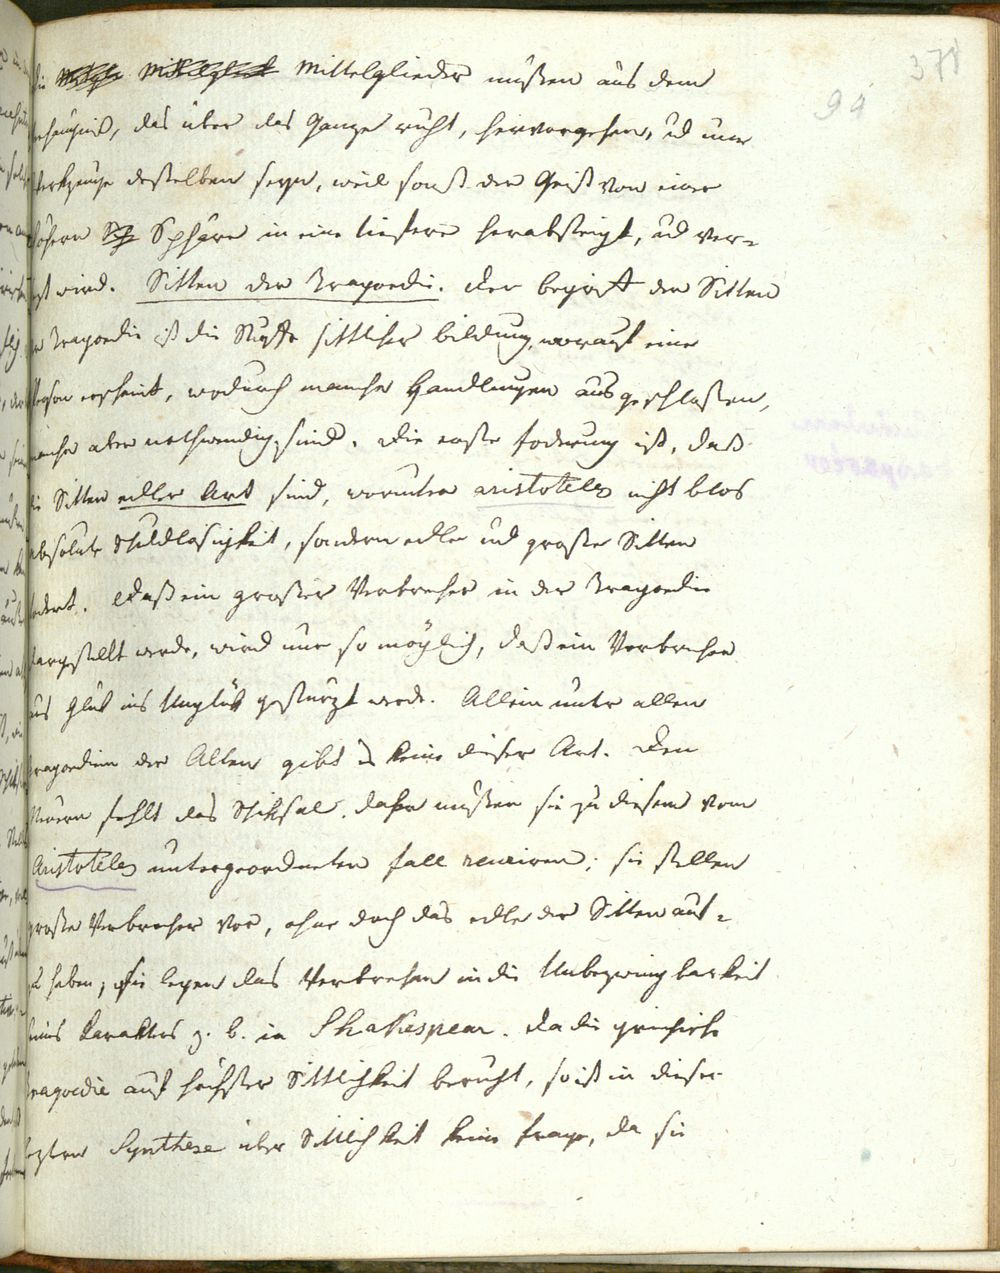 371
94
die Mittelglieder müßen aus dem
Verhängniß, das über das Ganze ruht, hervorgehen, ud nur
Werkzeuge desselben seyn, weil sonst der Geist von einer
höhern Sphäre in eine tiefere herabsteigt, ud ver=
lezt wird. Sitten der Tragoedie. Der begriff der Sitten
der Tragoedie ist die Stuffe sittlicher bildung, worauf eine
Person erscheint, wodurch manche Handlungen ausgeschlossen,
manche aber nothwendig sind. Die erste foderung ist, daß
die Sitten edler Art sind, worunter Aristoteles nicht blos
absolute Schuldlosigkeit, sondern edle und große Sitten
fodert. Daß ein großer Verbrecher in der Tragoedie
dargestellt werde, wird nur so möglich, daß ein Verbrecher
aus Glük ins Unglük gestürzt werde. Allein unter allen
Tragoedien der Alten gibt es keine dieser Art. Den
Neuern fehlt das Schiksal. daher müßen sie zu diesem vom
Aristoteles untergeordneten fall recuriren; sie stellen
große Verbrecher vor, ohne doch das edle der Sitten auf=
zu heben; sie legen das Verbrechen in die Unbezwingbarkeit
eines Karakters z. b. in Shakespear. Da die griechische
Tragoedie auf höchster Sittlichkeit beruht, so ist in dieser
lezten Synthese über Sittlichkeit keine frage, da sie